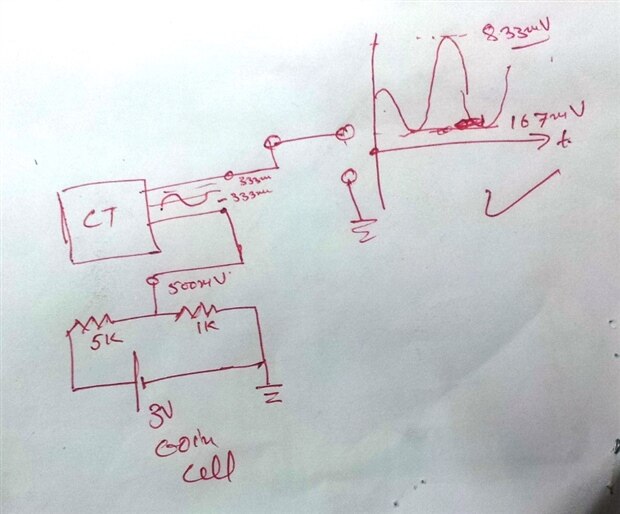 833mV
167mV
t
333mv
-333mv
CT
500mV
5K
1K
3V
Coin
Cell